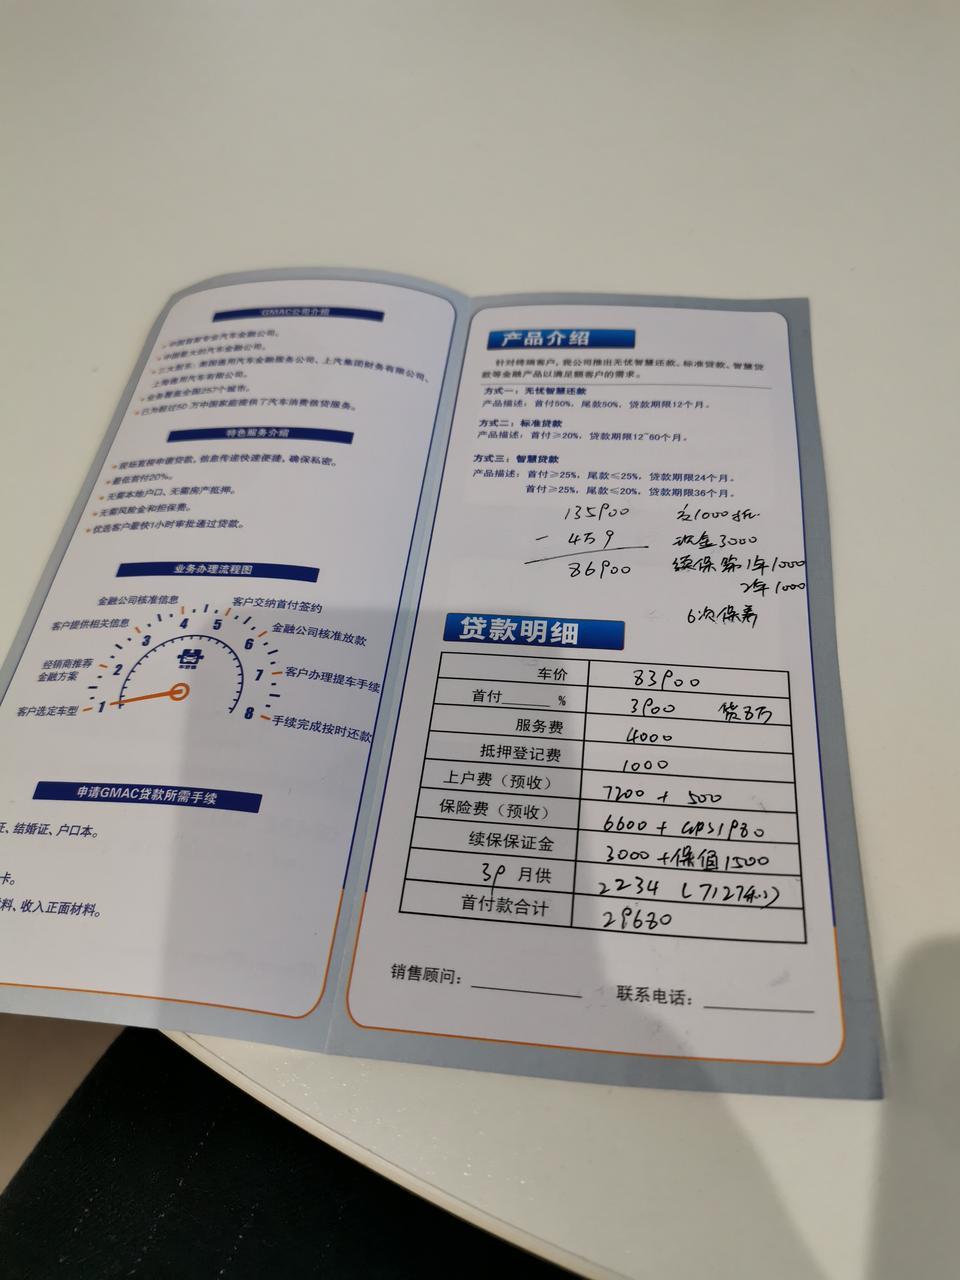 GMAC公司介绍
中国首家专业汽车金融公司。
中国最大的汽车金融公司。
三大股东：美国通用汽车金融服务公司、上汽集团财务有限公司、
上海通用汽车有限公司。
业务覆盖全国257个城市。
已为超过50万中国家庭提供了汽车消费信贷服务。
特色服务介绍
现场直接申请贷款，信息传递快速便捷，确保私密。
最低首付20%。
无需本地户口、无需房产抵押。
无需风险金和担保费。
优选客户最快1小时审批通过贷款。
业务办理流程图
金融公司核准信息
客户交纳首付签约
客户提供相关信息
金融公司核准放款
经销商推荐
金融方案
客户办理提车手续
客户选定车型
手续完成按时还款
1 2 3 4 5 6 7 8
申请GMAC贷款所需手续
证、结婚证、户口本。
卡。
料、收入证明材料。
产品介绍
针对终端客户，我公司推出无忧智慧还款、标准贷款、智慧贷
款等金融产品以满足额客户的需求。
方式一：无忧智慧还款
产品描述：首付50%，尾款50%，贷款期限12个月。
方式二：标准贷款
产品描述：首付≥20%，贷款期限12~60个月。
方式三：智慧贷款
产品描述：首付≥25%，尾款≤25%，贷款期限24个月。
首付≥25%，尾款≤20%，贷款期限36个月。
135900
- 459
86900
含1000抵
现金3000
续保第1年1000
2年1000
6次保养
贷款明细
车价 83900
首付 % 3900 贷8万
服务费 4000
抵押登记费 1000
上户费（预收） 7200 + 500
保险费（预收） 6600 + GPS1980
续保保证金 3000 + 保值1500
39 月供 2234 (7127利)
首付款合计 29680
销售顾问：
联系电话：